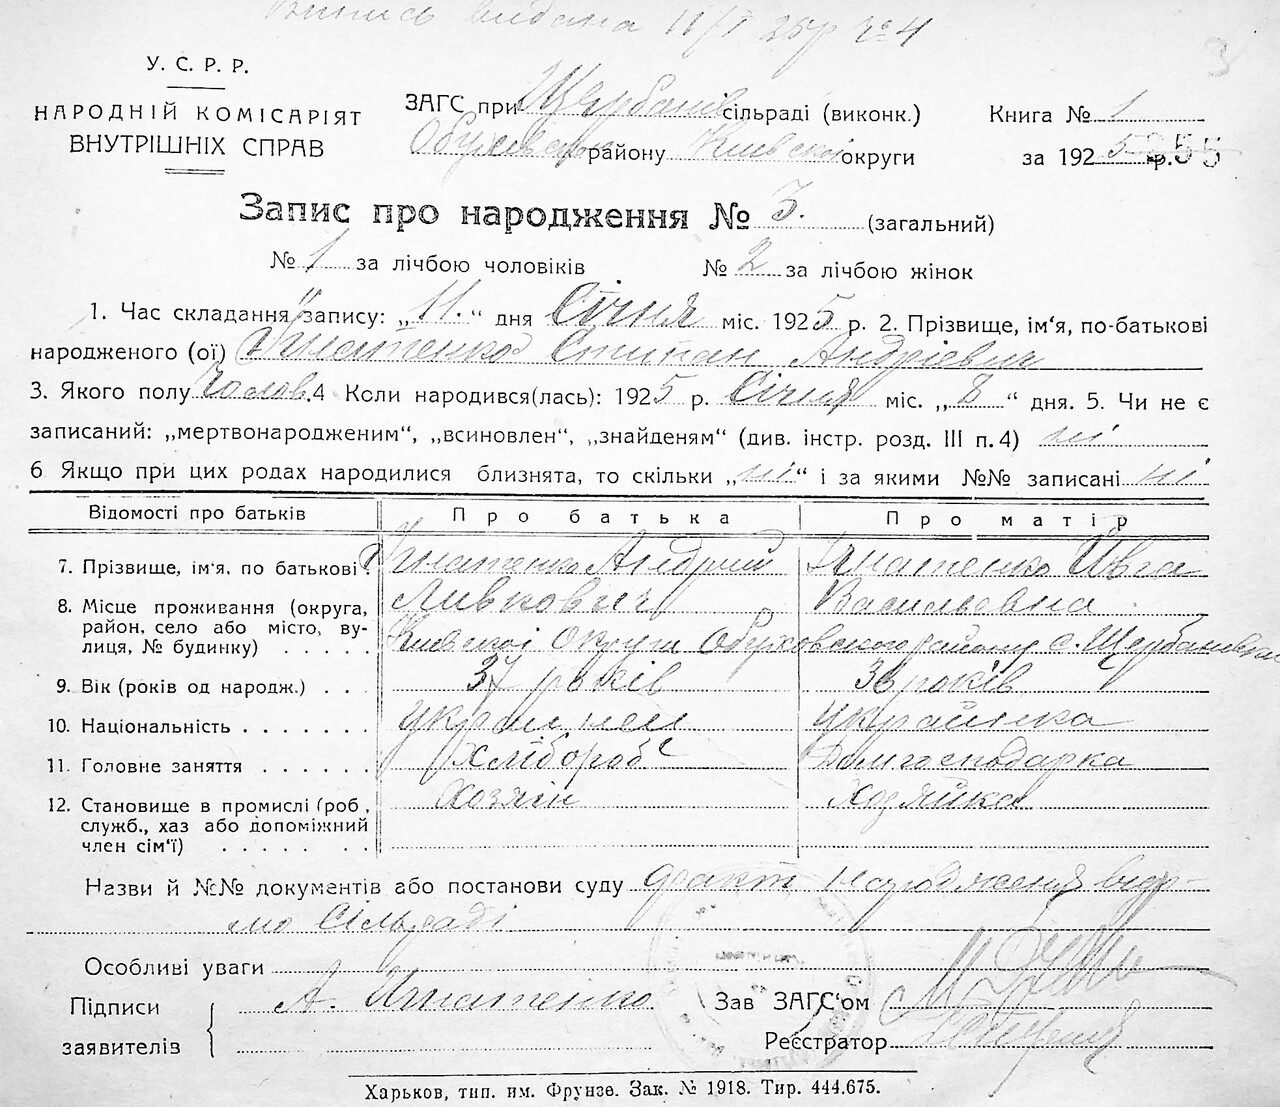 Випись видана 11/I 25р №4
3
У. С. Р. Р.
НАРОДНІЙ КОМІСАРІЯТ
ВНУТРІШНІХ СПРАВ
ЗАГС при Щербанів сільраді (виконк.)
Обухівськ району Київскої округи
Книга № 1
за 1925 р. 55
Запис про народження № 3. (загальний)
№ 1 за лічбою чоловіків № 2 за лічбою жінок
1. Час складання запису: „11.“ дня Січня міс. 1925 р. 2. Прізвище, ім'я, по-батькові
народженого (ої) Игнатенко Стипан Андрієвич
3. Якого полу Чолов. 4 Коли народився(лась): 1925 р. Січня міс. „8“ дня. 5. Чи не є
записаний: „мертвонародженим“, „всиновлен“, „знайденям“ (див. інстр. розд. III п. 4) ні
6 Якщо при цих родах народилися близнята, то скільки „ні“ і за якими №№ записані ні
Відомості про батьків Про батька Про матір
7. Прізвище, ім'я, по батькові Игнатенко Андрий Игнатенко Ивга
8. Місце проживання (округа, Ливкович Васильевна
район, село або місто, ву-
лиця, № будинку) Киівскої Округи Обуховского району с. Щербанивки
9. Вік (років од народж.) 37 років 36 років
10. Національність украинец українка
11. Головне заняття Хлібороб Домгосподарка
12. Становище в промислі (роб., Хозяїн Хозяйка
служб., хаз або допоміжний
член сім'ї)
Назви й №№ документів або постанови суду факт народження відо-
мо Сільраді
Особливі уваги
Підписи А. Игнатенко Зав ЗАГС'ом
заявителів Реєстратор
Харьков, тип. им. Фрунзе. Зак. № 1918. Тир. 444.675.